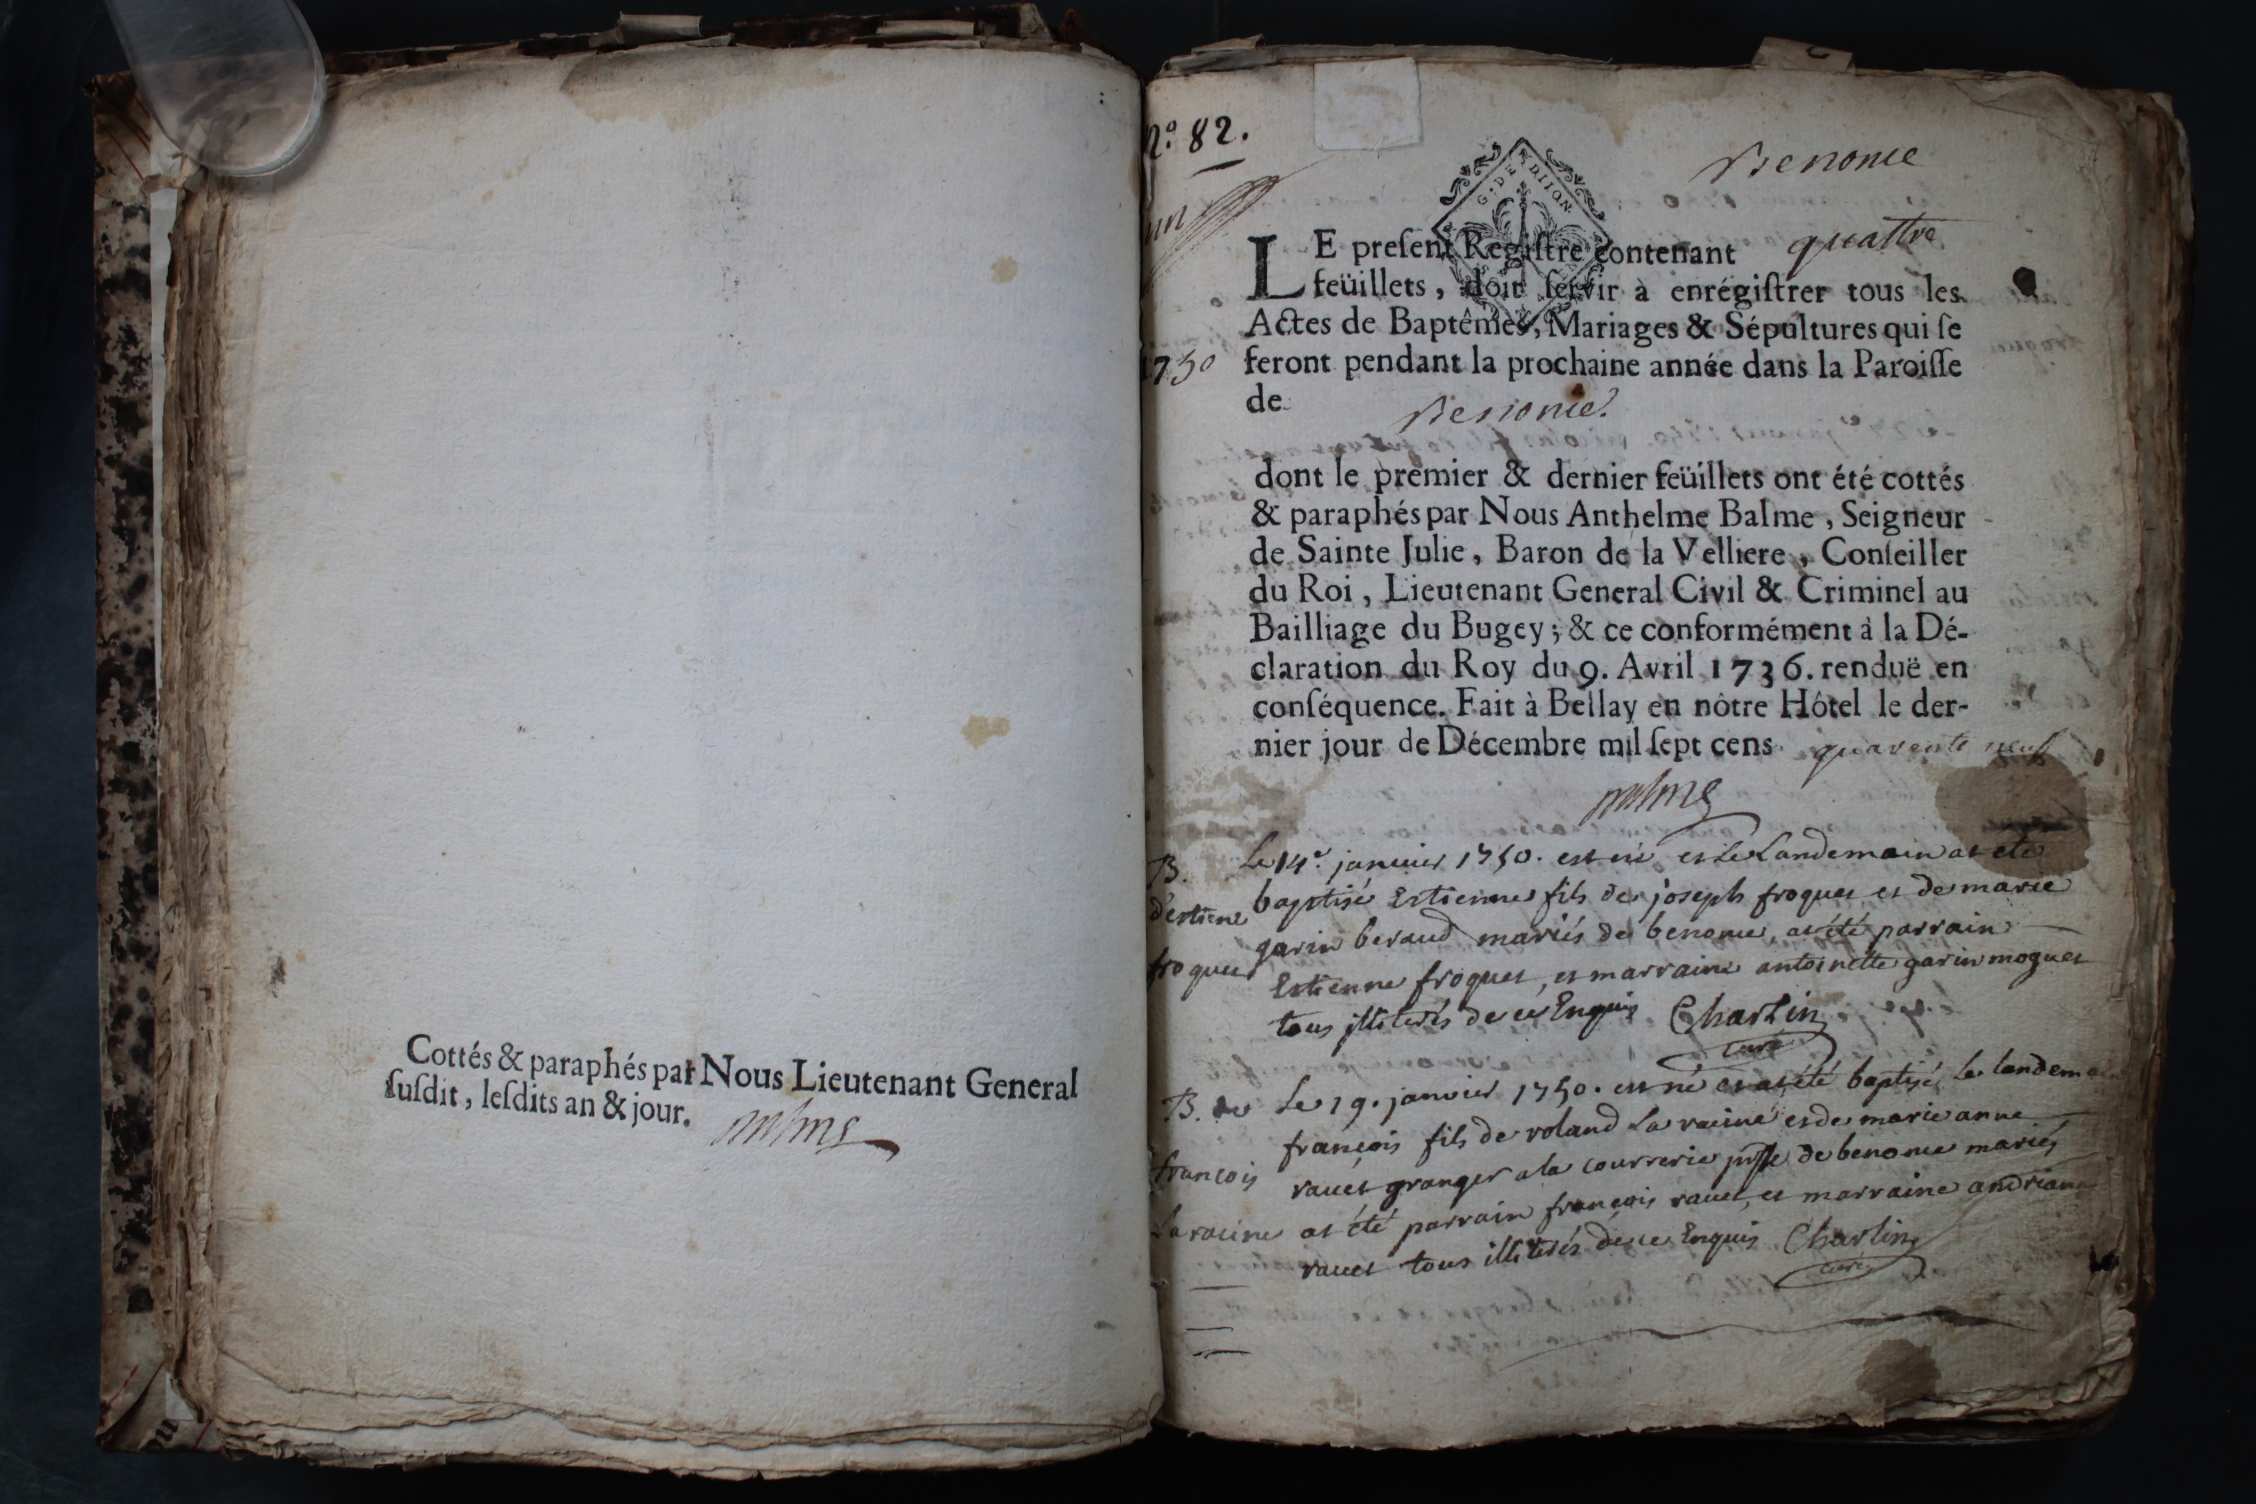 Cottés & paraphés par Nous Lieutenant General
ſuſdit, leſdits an & jour.
Balme
N.º 82.
un
Benonce
G. DE DIION
LE preſent Regiſtre contenant quattre
feüillets, doit ſervir à enrégiſtrer tous les
Actes de Baptêmes, Mariages & Sépultures qui ſe
1750
feront pendant la prochaine année dans la Paroiſſe
de Benonce.
dont le premier & dernier feüillets ont été cottés
& paraphés par Nous Anthelme Balme, Seigneur
de Sainte Julie, Baron de la Velliere, Conſeiller
du Roi, Lieutenant General Civil & Criminel au
Bailliage du Bugey; & ce conformément à la Dé-
claration du Roy du 9. Avril 1736. renduë en
conſéquence. Fait à Bellay en nôtre Hôtel le der-
nier jour de Décembre mil ſept cens quarente neuf
Balme
B.
d'estiene
froquet
Le 14e. janvier 1750. est né et le Landemain at eté
baptisé Estienne fils de joseph froquet et de marie
garin beraud mariés de benonce, at été parrain
Estienne froquet, et marraine antoinette garin moguet
tous illiterés de ce Enquis Charlin
curé
B. de
françois
Laracine
Le 19. janvier 1750. est né et at été baptisé Le landemain
françois fils de roland La racine et de marie anne
ravet granger a la courrerie psse de benonce mariés
at été parrain françois ravet, et marraine andriane
ravet tous illiterés de ce Enquis Charlin
curé